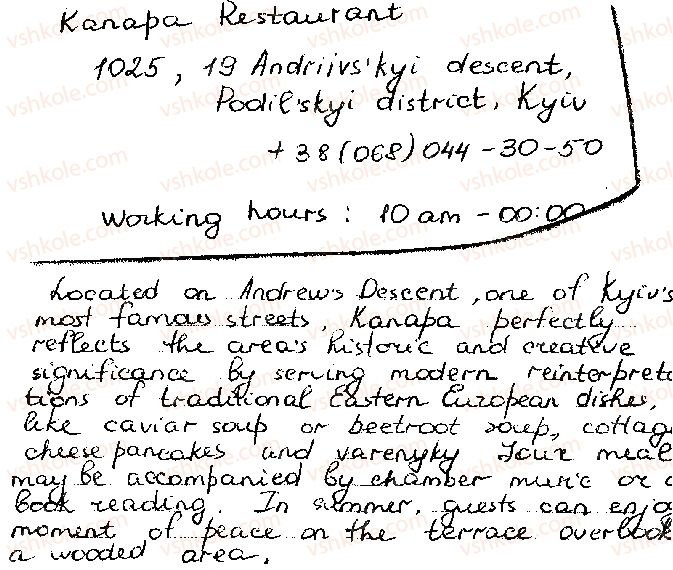 Kanapa Restaurant
1025, 19 Andriivs'kyi descent,
Podil'skyi district, Kyiv
+38(068)044-30-50
Working hours: 10 am - 00:00
Located on Andrew's Descent, one of Kyiv's
most famous streets, Kanapa perfectly
reflects the area's historic and creative
significance by serving modern reinterpreta
tions of traditional Eastern European dishes,
like caviar soup or beetroot soup, cottag
cheese pancakes and varenyky Your meal
may be accompanied by chamber music or a
book reading. In summer, guests can enjo
moment of peace on the terrace overlook
a wooded area.